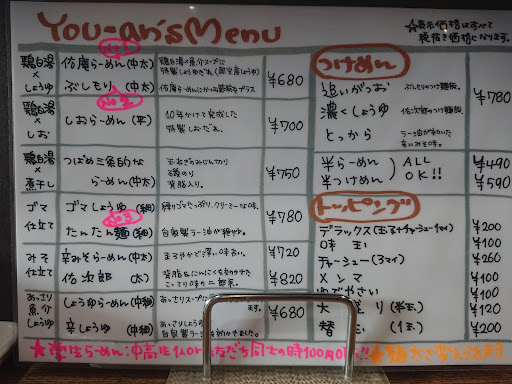 You-an's Menu
☆表示価格はすべて
税抜き価格になります。
No.1
鶏白湯
×
しょうゆ
佑庵らーめん(中太)
ぶしもり(中太)
鶏白湯×魚介スープに
佑庵らーめんにかつお節粉をプラス
¥680
No.2
鶏白湯
×
しお
しおらーめん(平)
10年かけて完成した
特製しおだれ。
¥700
鶏白湯
×
煮干し
つばめ三条的な
らーめん(中太)
玉ねぎのみじん切り
磯のり
背脂入り。
¥750
ゴマ
仕立て
ゴマしょうゆ(細)
No.3
たんたん麺(細)
練りゴマたっぷり、クリーミーな味。
自家製ラー油が穏やか。
¥780
みそ
仕立て
辛みそらーめん(中太)
佑次郎(太)
まろやかで深い味わい。
¥720
背脂とにんにくをきかせた
こってり味の二郎系。
¥820
あっさり
魚介
しょうゆ
しょうゆらーめん(中細)
辛しょうゆ(中細)
あっさりスープに
ます。
あっさりしょうゆ
自家製ラー油をきかせました。
¥680
つけめん
追いがつお
ぶしもりのつけ麺版。
濃くしょうゆ
佑次郎のつけ麺版。
とっから
ラー油がきいた
辛いみそ味。
¥780
半らーめん
半つけめん
ALL
OK!!
¥490
¥590
トッピング
デラックス(玉子+チャーシュー+のり) ¥200
味玉 ¥100
チャーシュー(3マイ) ¥260
メンマ ¥100
ゆでやさい ¥100
大盛り(半玉) ¥120
替玉(1玉) ¥200
☆学生らーめん:中高生1人or友だち同士の時100円引き!!
☆麺太さ変えられます